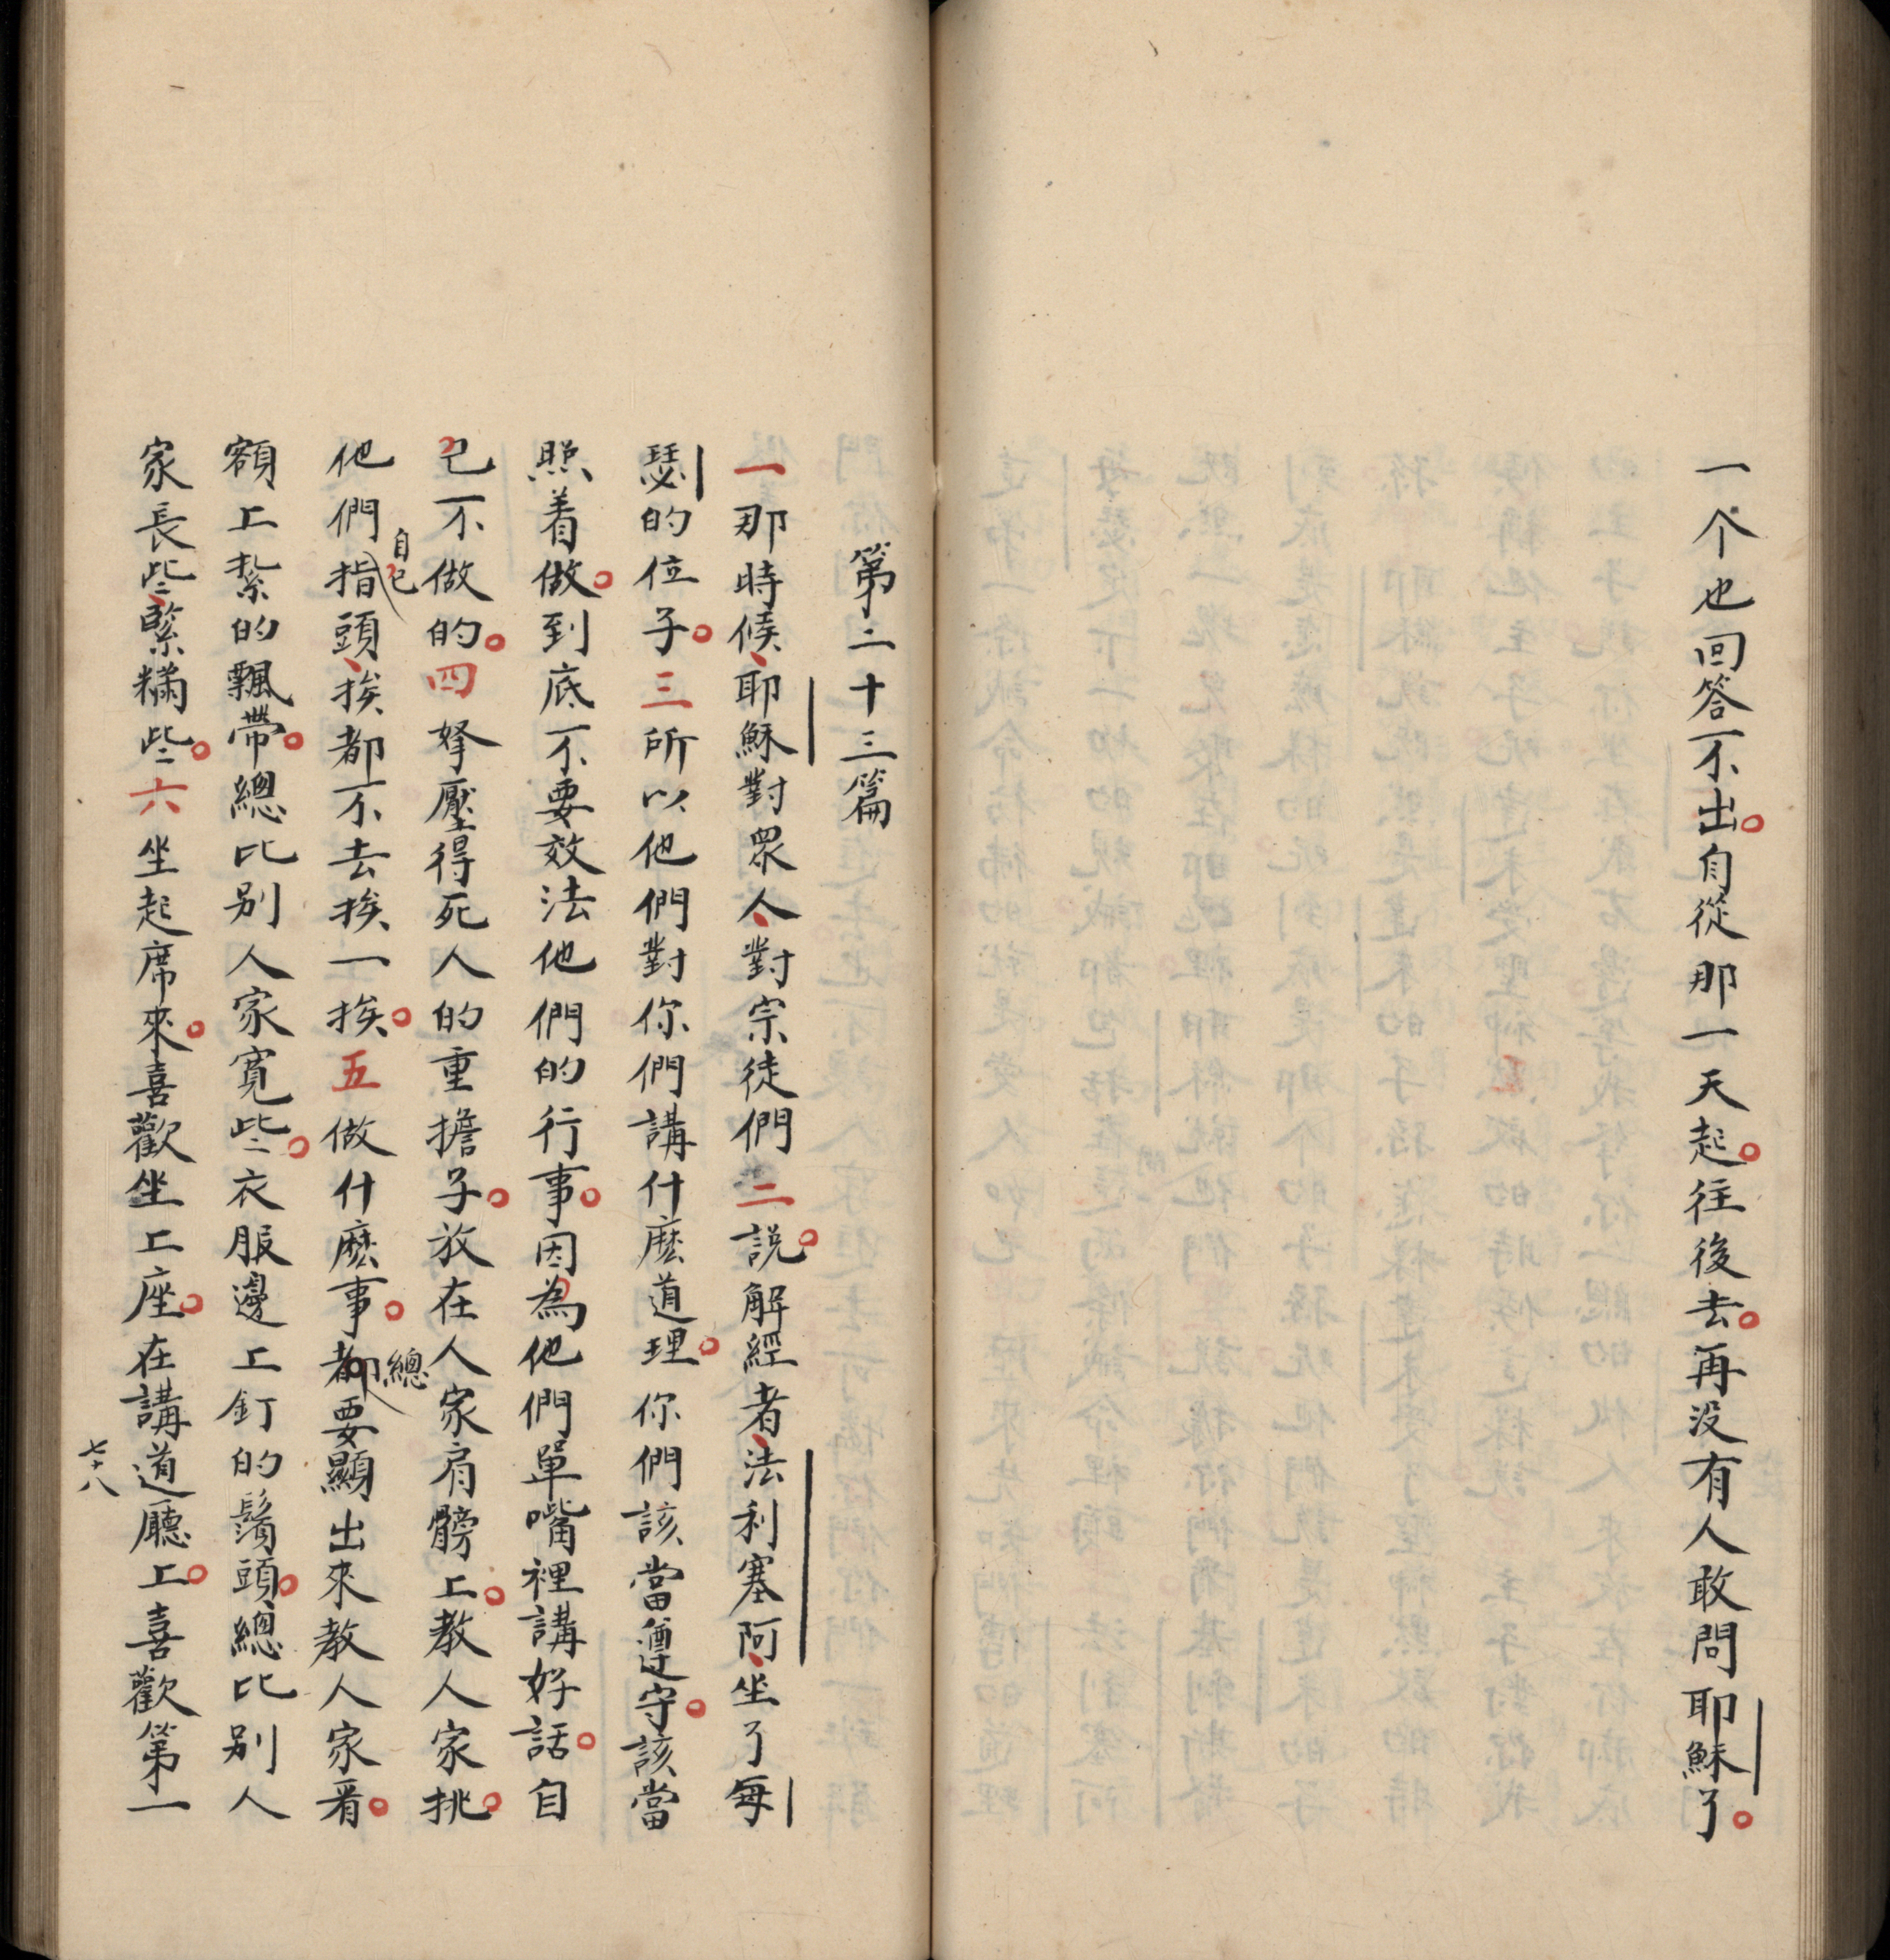 一个也回答不出。自從那一天起。往後去。再没有人敢問耶穌了。
第二十三篇
一那時候、耶穌對眾人、對宗徒們二説。解經者、法利塞阿、坐了每
瑟的位子。三所以他們對你們講什麽道理。你們該當遵守。該當
照着做。到底不要效法他們的行事。因為他們單嘴裡講好話。自
己不做的。四拏壓得死人的重擔子。放在人家肩髈上。教人家挑。
他們自己指頭、挨都不去挨一挨。五做什麽事。都總要顯出來教人家看。
額上紮的飄帶。總比别人家寛些。衣服邊上釘的鬚頭。總比别人
家長些、緊糯些。六坐起席來。喜歡坐上座。在講道廳上。喜歡第一
七十八